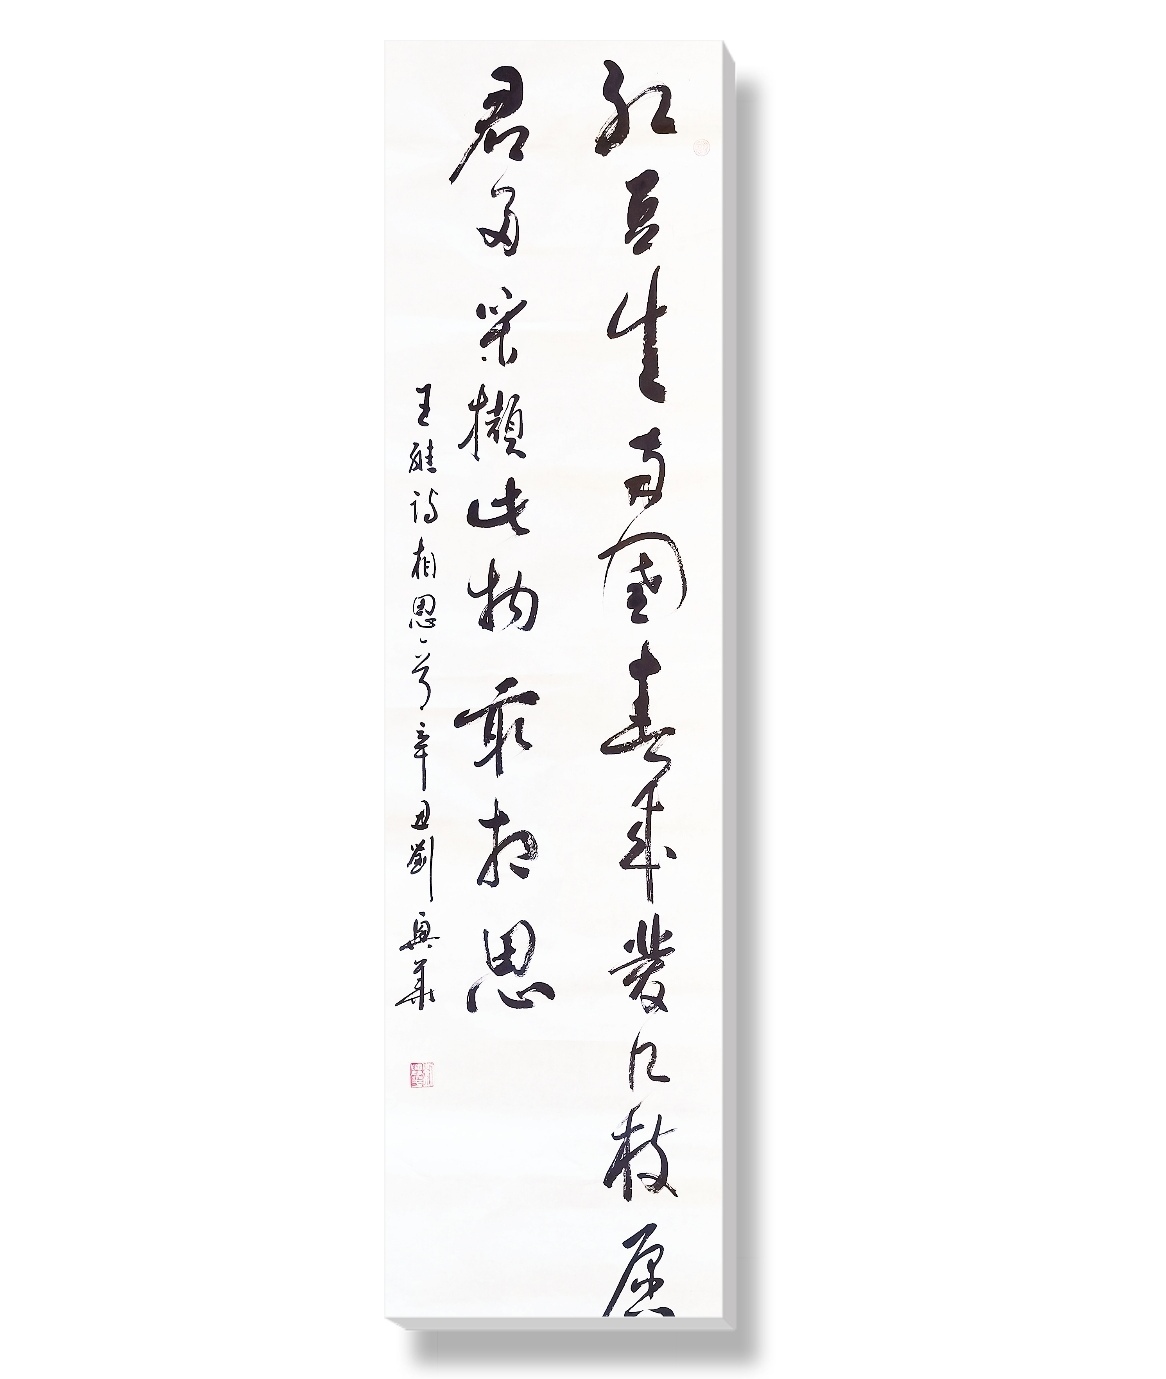 红豆生南國春来發几枝愿
君多采擷此物最相思
王維诗相思一首辛丑劉興華